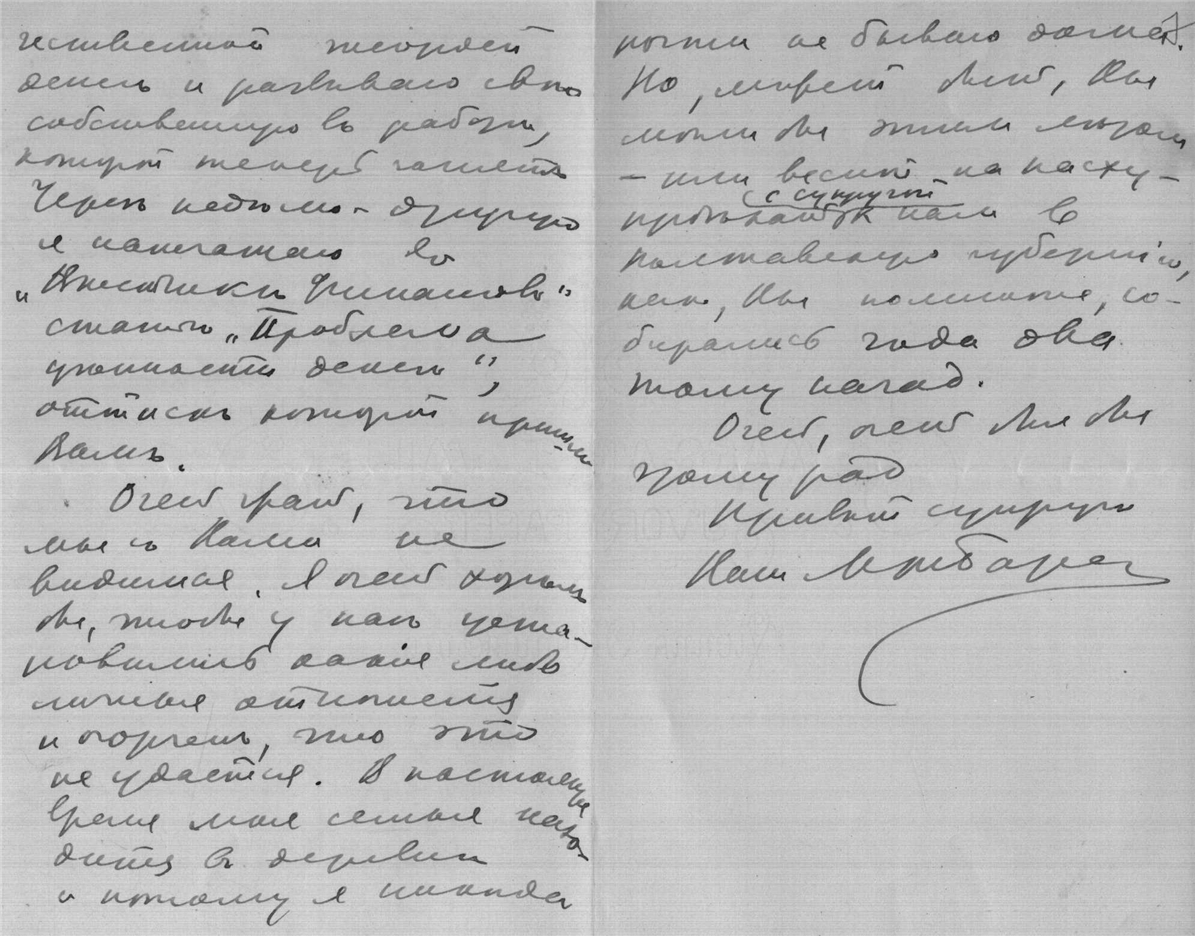 чественной теорией
денегъ и развиваю свою
собственную въ работе,
которой теперь
Черезъ неделю-другую
я напечатаю въ
„Вестнике Финансовъ“
статью „Проблема
ценности денегъ“,
оттискъ которой пришлю
Вамъ.
Очень жаль, что
мы съ Вами не
видимся. Я очень хотелъ
бы, чтобы у насъ уста-
новились какие либо
личные отношения
и огорченъ, что это
не удается. В настоящее
время моя семья нахо-
дится в деревне
и потому я никогда
почти не бываю дома.
Но, может быть, Вы
могли бы этим летом
– или весной на пасху –
с супругой
приехать к нам в
полтавскую губернію,
как, Вы помните, со-
бирались года два
тому назад.
Очень, очень был бы
тому рад
Привет супруге
Ваш